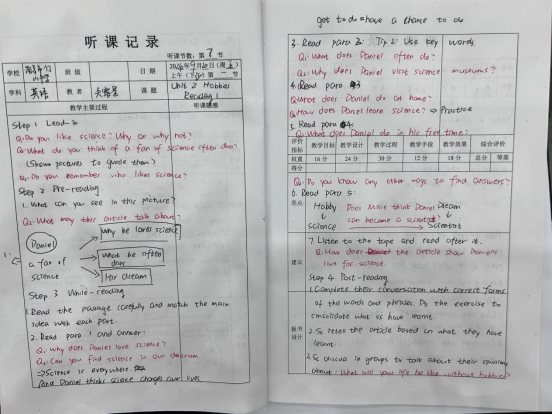 听课记录
听课节数：第 7 节
学校
班级
日期
上午（下午）第 一 节
学科 英语 教者 课题 Unit 2 Hobbies
Reading 1
教学主要过程 听课随感
Step 1 Lead-in
Q: Do you like science? Why or why not?
Q: What do you think of a fan of science often do?
(Show pictures to guide them)
Q: Do you remember who likes science?
Step 2 Pre-reading
1. What can you see in this picture?
Q: What may this article talk about?
Daniel
a fan of
science
Why he loves science
What he often
does
His dream
Step 3 While-reading
1. Read the passage carefully and match the main
idea with each part.
2. Read para 1 and answer:
Q1: Why does Daniel love science?
Q2: Can you find science in our classroom
⇒ Science is everywhere
And Daniel thinks science changes our lives
got to do = have a chance to do
3. Read para 2: Tip 2: Use key words
Q1: What does Daniel often do?
Q2: Why does Daniel visit science museums?
4. Read para 3
Q: What does Daniel do at home?
Q: How does Daniel learn science? ⇒ Practice
5. Read para 4:
Q: What does Daniel do in his free time?
评价指标 教学目标 教学设计 教学过程 教学手段 教学效果 综合评价
权重 16分 24分 30分 12分 18分 总分 等第
得分
Q: Do you know any other ways to find answers?
6. Read para 5:
亮点
Hobby Does Millie think Daniel Dream
can become a scientist?
science Scientists
建议
7. Listen to the tape and read after it.
Q: How does the article show Daniel's
love for science.
Step 4 Post-reading
1. Complete their conversation with correct forms
of the words and phrases. Do the exercise to
consolidate what ss have learnt
板书设计
2. Ss retell the article based on what they have
learnt.
2. Ss discuss in groups to talk about their opinions
about: What will your life be like without hobbies?